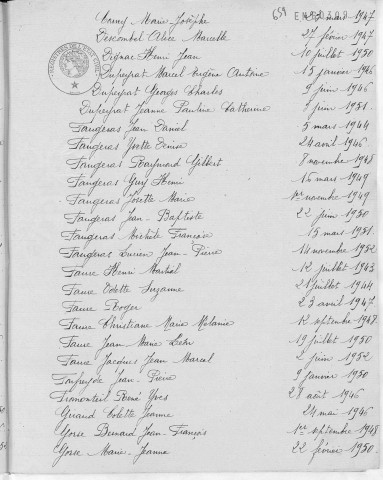 Marie Josèphe 1947
Descombel Alice Marcelle 27 février 1947
Dignac Henri Jean 10 juillet 1950
Dupeyrat Marcel Eugène Antoine 13 janvier 1946
Dupeyrat Georges Charles 9 juin 1946
Dupeyrat Jeanne Pauline Catherine 8 juin 1951
Faugeras Jean Daniel 5 mars 1944
Faugeras Yvette Denise 24 avril 1946
Faugeras Raymond Gilbert 8 novembre 1948
Faugeras Guy Henri 16 mars 1949
Faugeras Josette Marie 1er novembre 1949
Faugeras Jean-Baptiste 22 juin 1950
Faugeras Michèle Françoise 15 mars 1951
Faugeras Lucien Jean-Pierre 14 novembre 1952
Faure Henri Martial 12 juillet 1943
Faure Odette Suzanne 21 juillet 1944
Faure Roger 23 avril 1947
Faure Christiane Marie Mélanie 12 septembre 1948
Faure Jean Marie Léon 19 juillet 1950
Faure Jacques Jean Marcel 2 juin 1952
Jean-Pierre 9 janvier 1950
René Yves 28 août 1946
Colette Jeanne 24 mai 1946
Gorse Bernard Jean-François 1er septembre 1948
Gorse Marie-Jeanne 22 février 1950